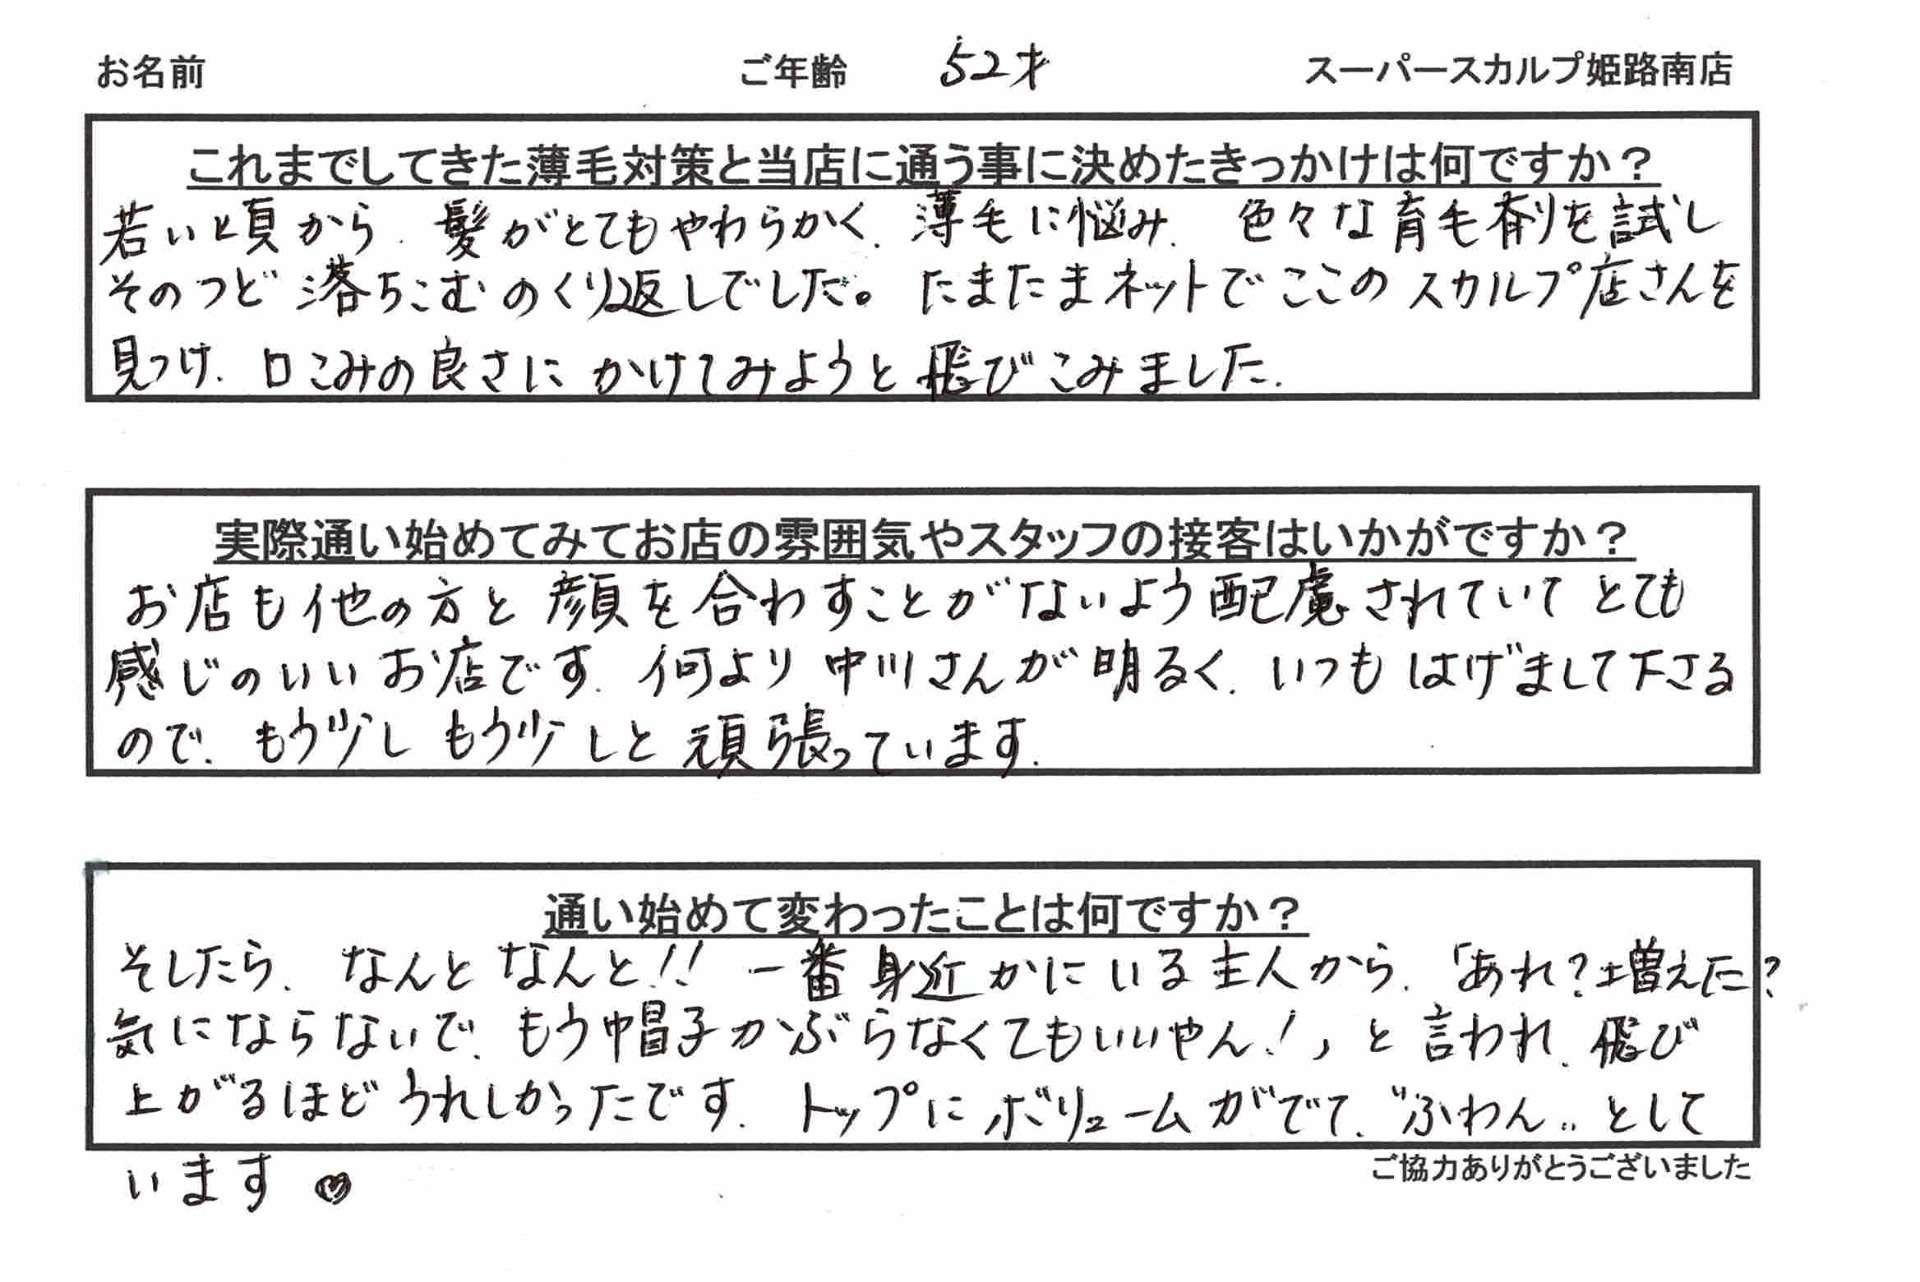 お名前 ご年齢 52才 スーパースカルプ姫路南店
これまでしてきた薄毛対策と当店に通う事に決めたきっかけは何ですか？
若い頃から、髪がとてもやわらかく、薄毛に悩み、色々な育毛剤を試し
そのつど落ちこむのくり返しでした。たまたまネットでここのスカルプ店さんを
見つけ、口こみの良さにかけてみようと飛びこみました。
実際通い始めてみてお店の雰囲気やスタッフの接客はいかがですか？
お店も他の方と顔を合わすことがないよう配慮されていてとても
感じのいいお店です。何より中川さんが明るく、いつもはげまして下さる
ので、もう少しもう少しと頑張っています。
通い始めて変わったことは何ですか？
そしたら、なんとなんと!! 一番身近かにいる主人から、「あれ?増えた?
気にならないで、もう帽子かぶらなくてもいいやん!」と言われ、飛び
上がるほどうれしかったです。トップにボリュームがでて、"ふわん"として
います♡
ご協力ありがとうございました